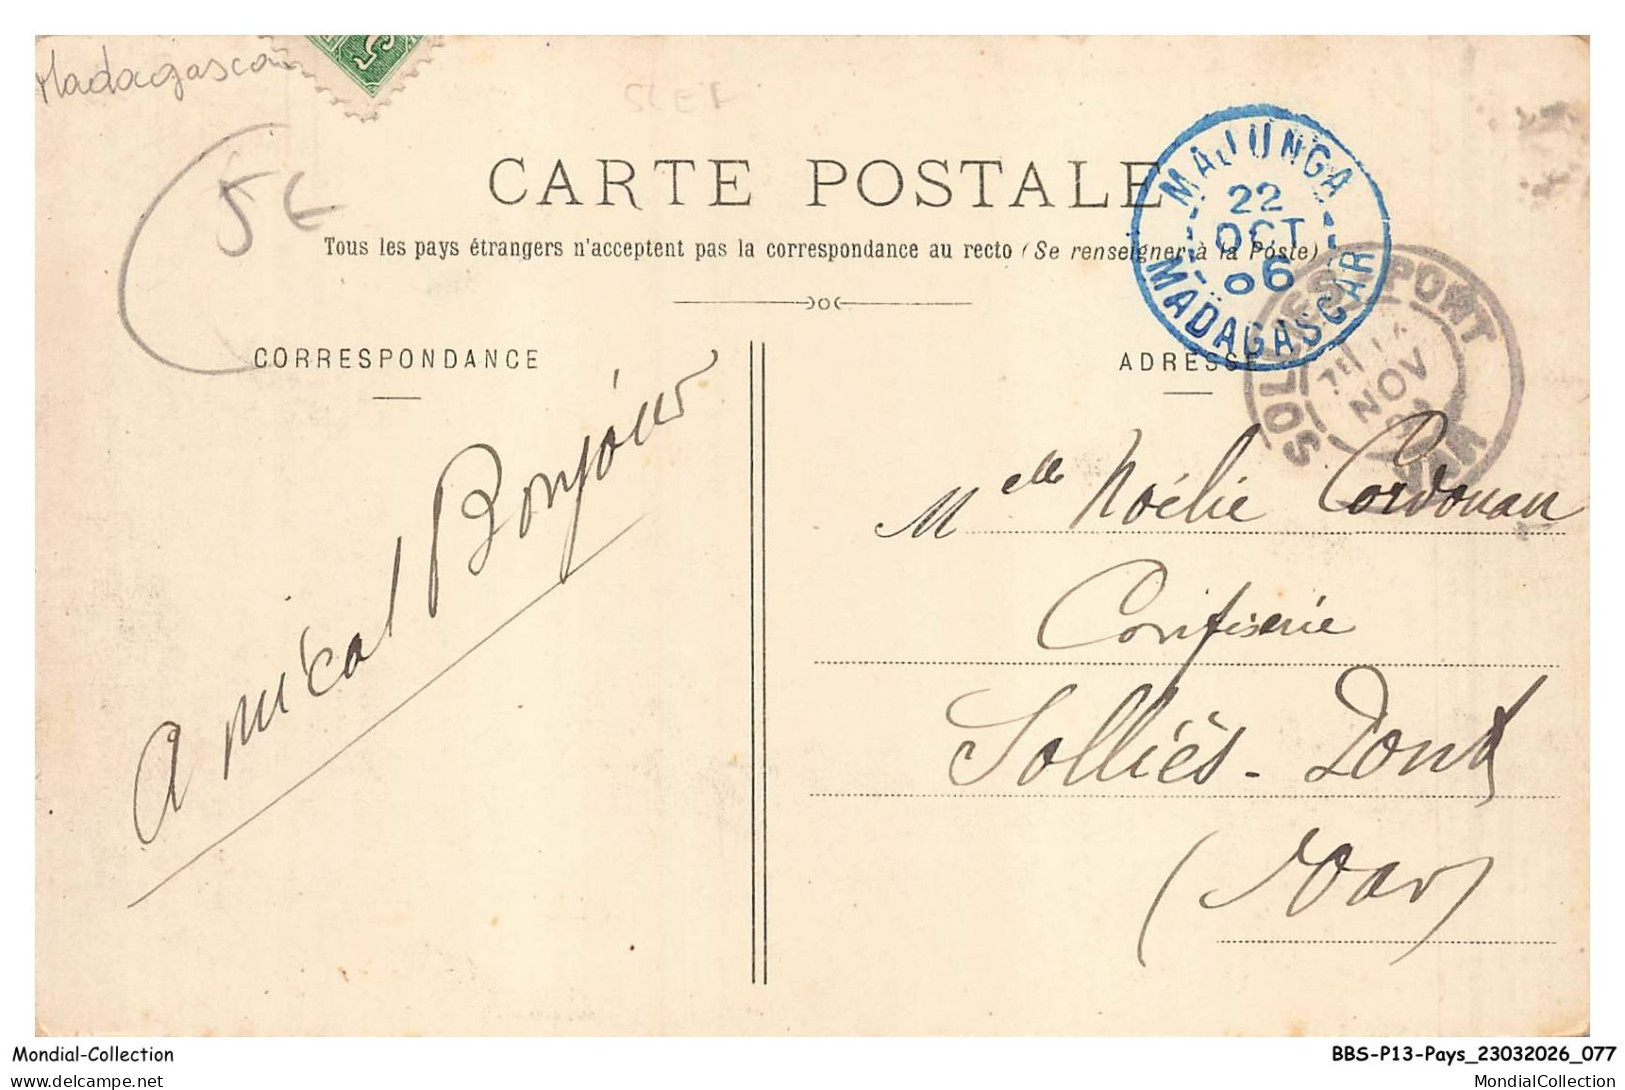 Madagascar
5
5€
CARTE POSTALE
Tous les pays étrangers n'acceptent pas la correspondance au recto (Se renseigner à la Poste)
CORRESPONDANCE
ADRESSE
MAJUNGA
22
OCT
06
MADAGASCAR
SOLLIES-PONT
NOV
VAR
Amical Bonjour
Melle Noélie Cordouan
Confiserie
Solliès-Pont
(Var)
Mondial-Collection
BBS-P13-Pays_23032026_077
delcampe.net
MondialCollection